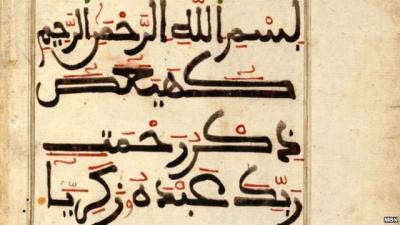 بسم الله الرحمن الرحيم
كهيعص
ذكر رحمت
ربك عبده زكريا
MBN